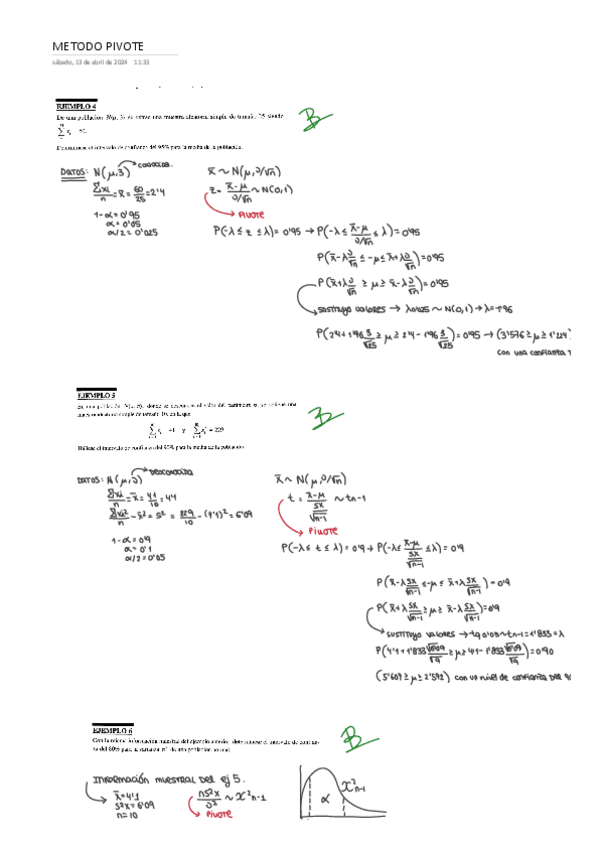 METODO PIVOTE
sábado, 13 de abril de 2024 11:33
EJEMPLO 4
De una población N(μ, 3) se extrae una muestra aleatoria simple de tamaño 25 siendo
Determínese el intervalo de confianza del 95% para la media de la población.
DATOS: N(μ,3) → CONOCIDA.
Σxi/n = x̄ = 60/25 = 2'4
1-α = 0'95
α = 0'05
α/2 = 0'025
x̄ ~ N(μ, σ/√n)
z = (x̄-μ)/(σ/√n) ~ N(0,1)
→ PIVOTE
P(-λ ≤ z ≤ λ) = 0'95 → P(-λ ≤ (x̄-μ)/(σ/√n) ≤ λ) = 0'95
P(x̄-λ σ/√n ≤ -μ ≤ x̄+λ σ/√n) = 0'95
P(x̄+λ σ/√n ≥ μ ≥ x̄-λ σ/√n) = 0'95
SUSTITUYO VALORES → λ0'025 ~ N(0,1) → λ = 1'96
P(2'4+1'96 3/√25 ≥ μ ≥ 2'4-1'96 3/√25) = 0'95 → (3'576 ≥ μ ≥ 1'224)
con una confianza
EJEMPLO 5
muestra aleatoria simple de tamaño 10, en la que
Hállese el intervalo de confianza del 90% para la media de la población.
DATOS: N(μ,σ) → DESCONOCIDA
Σxi/n = x̄ = 41/10 = 4'1
Σxi²/n - x̄² = S² = 229/10 - (4'1)² = 6'09
1-α = 0'9
α = 0'1
α/2 = 0'05
x̄ ~ N(μ, σ/√n)
t = (x̄-μ)/(Sx/√n-1) ~ tn-1
→ PIVOTE
P(-λ ≤ t ≤ λ) = 0'9 → P(-λ ≤ (x̄-μ)/(Sx/√n-1) ≤ λ) = 0'9
P(x̄-λ Sx/√n-1 ≤ -μ ≤ x̄+λ Sx/√n-1) = 0'9
P(x̄+λ Sx/√n-1 ≥ μ ≥ x̄-λ Sx/√n-1) = 0'9
SUSTITUYO VALORES → t9 0'05 ~ tn-1 = 1'833 = λ
P(4'1+1'833 √6'09/√9 ≥ μ ≥ 4'1-1'833 √6'09/√9) = 0'90
(5'607 ≥ μ ≥ 2'592) con un nivel de confianza del
EJEMPLO 6
Con la misma información muestral del ejemplo anterior, determínese el intervalo de confian-
za del 80% para la varianza σ² de una población normal.
Información muestral del ej 5.
x̄ = 4'1
S²x = 6'09
n = 10
nS²x/σ² ~ X²n-1
→ PIVOTE
α
X²n-1